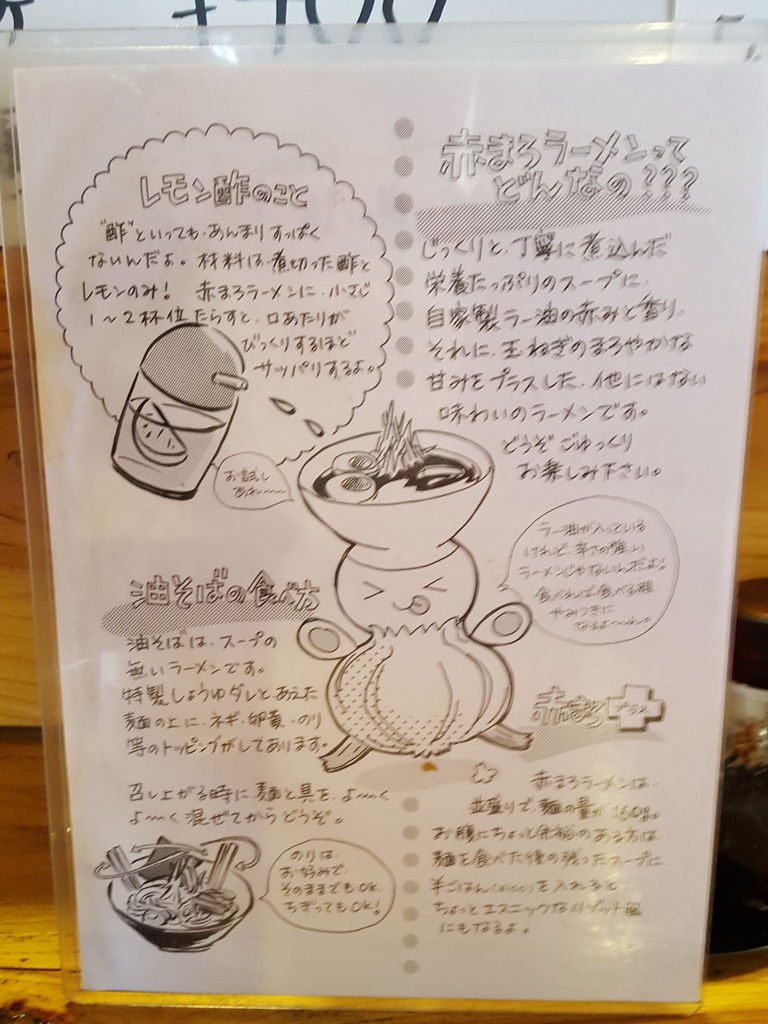 ¥700
レモン酢のこと
"酢"といっても、あんまりすっぱく
ないんだよ。材料は、煮切った酢と
レモンのみ! 赤まろラーメンに、小さじ
1〜2杯位たらすと、口あたりが
びっくりするほど
サッパリするよ。
お試し
あれ〜〜
赤まろラーメンって
どんなの???
じっくりと、丁寧に煮込んだ
栄養たっぷりのスープに、
自家製ラー油の赤みと香り。
それに、玉ねぎのまろやかな
甘みをプラスした、他にはない
味わいのラーメンです。
どうぞごゆっくり
お楽しみ下さい。
ラー油が入っている
けれど、辛さの強い
ラーメンじゃないんだよ!
食べれば食べる程
やみつきに
なるよ〜れ。
油そばの食べ方
油そばは、スープの
無いラーメンです。
特製しょうゆダレとあえた
麺の上に、ネギ・卵黄・のり
等のトッピングがしてあります。
召し上がる時に麺と具を、よ〜く
よ〜く混ぜてからどうぞ。
のりは、
お好みで、
そのままでもOK
ちぎってもOK!
赤まろ プラス
赤まろラーメンは、
並盛りで麺の量が160g。
お腹にちょっと余裕のある方は、
麺を食べた後の残ったスープに
半ごはん を入れると
ちょっとエスニックなリゾット風
にもなるよ。